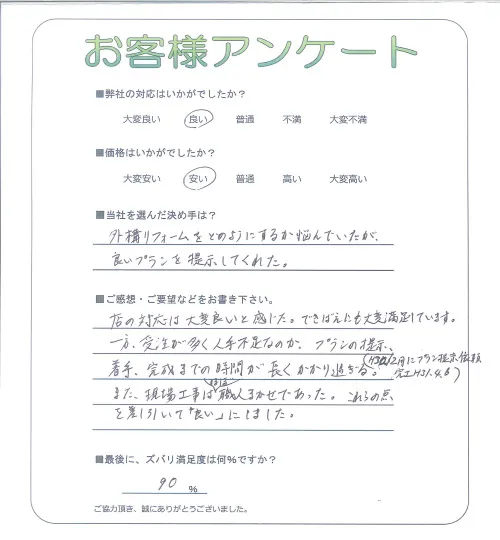 お客様アンケート
■弊社の対応はいかがでしたか?
大変良い 良い 普通 不満 大変不満
■価格はいかがでしたか?
大変安い 安い 普通 高い 大変高い
■当社を選んだ決め手は?
外構リフォームをどのようにするか悩んでいたが、
良いプランを提示してくれた。
■ご感想・ご要望などをお書き下さい。
店の対応は大変良いと感じた。できばえにも大変満足しています。
一方、受注が多く人手不足なのか、プランの提示、
着手、完成までの時間が長くかかり過ぎる。
にプラン提示依頼
完工H31.4.6)
また、現場工事はほぼ職人まかせであった。これらの点
を差し引いて「良い」にしました。
■最後に、ズバリ満足度は何%ですか?
90 %
ご協力頂き、誠にありがとうございました。